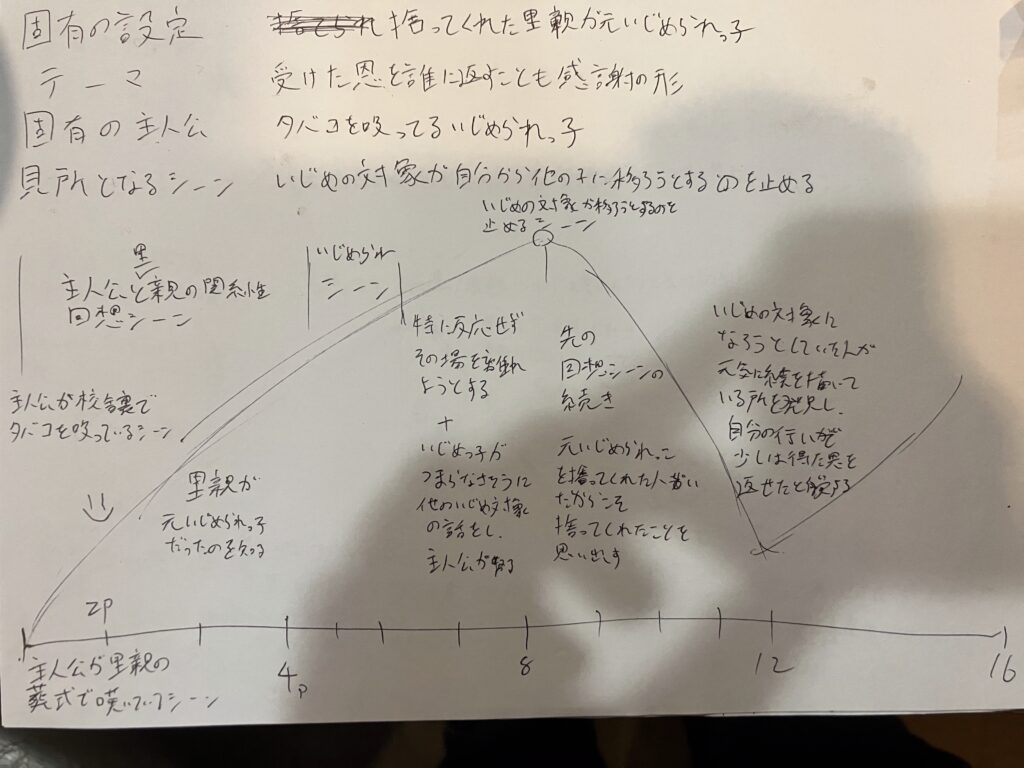 固有の設定 拾ってくれた里親が元いじめられっ子
テーマ 受けた恩を誰に返すことも感謝の形
固有の主人公 タバコを吸ってるいじめられっ子
見所となるシーン いじめの対象が自分から他の子に移ろうとするのを止める
いじめの対象が移ろうとするのを
止めるシーン
里
主人公と親の関係性
回想シーン
いじめられ
シーン
主人公が校舎裏で
タバコを吸っているシーン
里親が
元いじめられっ子
だったのを知る
特に反応せず
その場を離れ
ようとする
+
いじめっ子が
つまらなさそうに
他のいじめ対象
の話をし、
主人公が
先の
回想シーンの
続き
元いじめられっこ
を拾ってくれた人
だからこそ
拾ってくれたことを
思い出す
いじめの対象に
なろうとしていた人が
元気に絵を描いて
いる所を発見し、
自分の行いが
少しは得た恩を
返せたと
2P
4P
8
12
16
主人公が里親の
葬式で シーン